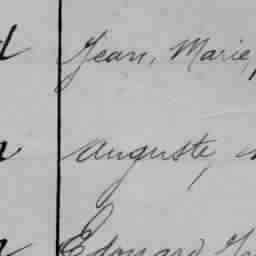 Jean, Marie,
Auguste,
Edouard